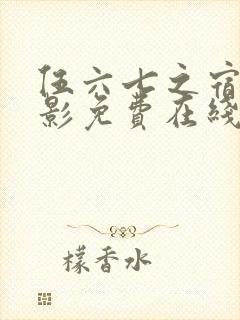 伍六七之宿
影免费在线
檬香水